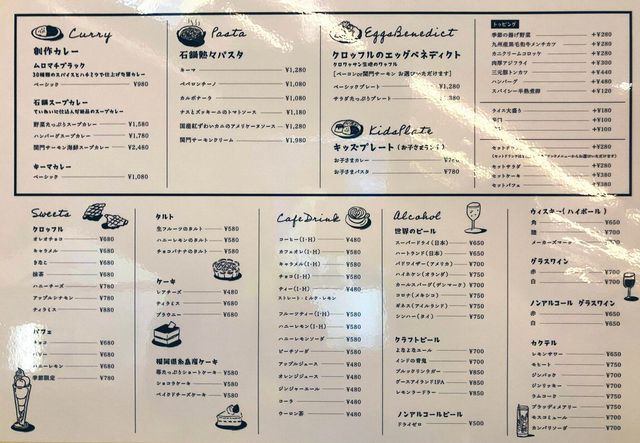 Curry
創作カレー
ムロマチブラック
30種類のスパイスとハチミツで仕上げた旨味カレー
ベーシック ¥980
石鍋スープカレー
ていねいに仕込んだ特製のスープカレー
野菜たっぷりスープカレー ¥1,580
ハンバーグスープカレー ¥1,780
関門サーモン海鮮スープカレー ¥2,480
キーマカレー
ベーシック ¥1,080
Pasta
石鍋熱々パスタ
キーマ ¥1,280
ペペロンチーノ ¥1,080
カルボナーラ ¥1,080
ナスとズッキーニのトマトソース ¥1,180
国産紅ずわいカニのアメリケーヌソース ¥1,280
関門サーモンクリーム ¥1,980
EggsBenedict
クロッフルのエッグベネディクト
クロワッサン生地のワッフル
[ベーコンor関門サーモン お選びいただけます]
ベーシックプレート ¥1,280
サラダたっぷりプレート 380
KidsPlate
キッズプレート(お子さまランチ)
お子さまカレー
お子さまパスタ ¥780
トッピング
季節の揚げ野菜 +¥280
九州産黒毛和牛メンチカツ +¥280
カニクリームコロッケ +¥280
肉厚アジフライ +¥300
三元豚トンカツ +¥440
ハンバーグ +¥480
スパイシー半熟煮卵 +¥120
ライス大盛り +¥100
+¥100
+¥100
セットドリンク
セットサラダ +¥280
セットケーキ +¥380
セットパフェ +¥380
Sweets
クロッフル
オレオチョコ ¥680
キャラメル ¥680
きなこ ¥680
抹茶 ¥680
ハニーチーズ ¥780
アップルシナモン ¥780
ティラミス ¥880
パフェ
チョコ ¥680
ベリー ¥680
ハニーレモン ¥680
季節限定 ¥780
タルト
生フルーツのタルト ¥580
ハニーレモンのタルト ¥580
チョコバナナのタルト ¥580
ケーキ
レアチーズ ¥480
ティラミス ¥580
ブラウニー ¥680
福岡県糸島産ケーキ
苺たっぷりショートケーキ ¥580
ショコラケーキ ¥580
ベイクドチーズケーキ ¥580
CafeDrink
コーヒー(I・H) ¥480
カフェオレ(I・H) ¥580
キャラメル(I・H) ¥580
チョコ(I・H) ¥580
ティー(I・H) ¥480
ストレート・ミルク・レモン
フルーツティー(I・H) ¥580
ハニーレモン(I・H) ¥580
ハニーレモンソーダ ¥580
ピーチソーダ ¥580
アップルジュース ¥480
オレンジジュース ¥480
ジンジャーエール ¥480
コーラ ¥480
ウーロン茶 ¥480
Alcohol
世界のビール
スーパードライ(日本) ¥650
ハートランド(日本) ¥650
バドワイザー(アメリカ) ¥650
ハイネケン(オランダ) ¥650
カールスバーグ(デンマーク) ¥650
コロナ(メキシコ) ¥650
ギネス(アイルランド) ¥650
シンハー(タイ) ¥650
クラフトビール
よなよなエール ¥700
インドの青鬼 ¥700
ブルックリンラガー ¥850
グースアイランドIPA ¥850
レモンラードラー ¥850
ノンアルコールビール
ドライゼロ ¥500
ウィスキー(ハイボール)
角 ¥650
穂 ¥650
メーカーズマーク ¥650
グラスワイン
赤 ¥650
白 ¥650
ノンアルコール グラスワイン
赤
白 ¥650
カクテル
レモンサワー ¥650
モヒート ¥700
ジンバック ¥700
ジンリッキー ¥700
ラムコーク ¥700
ブラッディメアリー ¥700
モスコミュール ¥700
カンパリソーダ ¥700